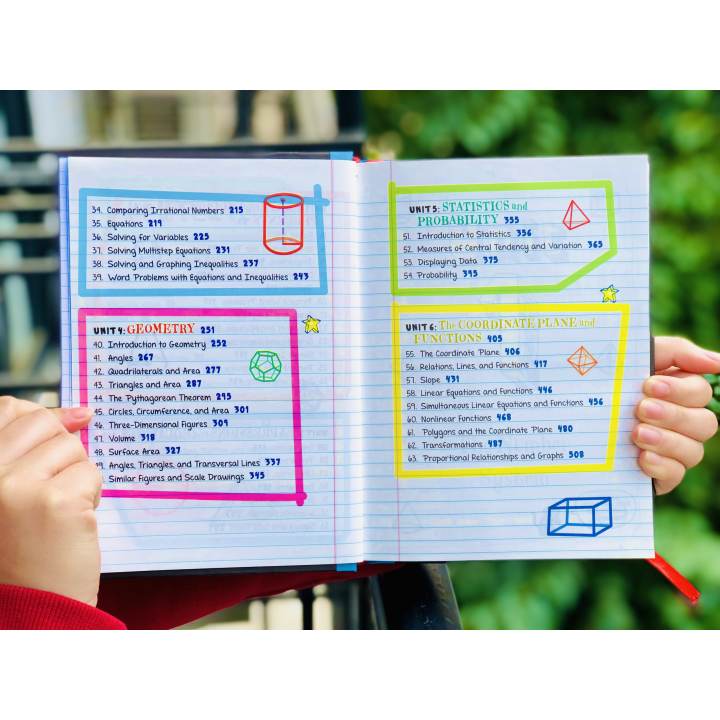 34. Comparing Irrational Numbers 215
35. Equations 219
36. Solving for Variables 225
37. Solving Multistep Equations 231
38. Solving and Graphing Inequalities 237
39. Word Problems with Equations and Inequalities 243
UNIT 4: GEOMETRY 251
40. Introduction to Geometry 252
41. Angles 267
42. Quadrilaterals and Area 277
43. Triangles and Area 287
44. The Pythagorean Theorem 295
45. Circles, Circumference, and Area 301
46. Three-Dimensional Figures 309
47. Volume 318
48. Surface Area 327
49. Angles, Triangles, and Transversal Lines 337
Similar Figures and Scale Drawings 345
UNIT 5: STATISTICS and
PROBABILITY 355
51. Introduction to Statistics 356
52. Measures of Central Tendency and Variation 365
53. Displaying Data 375
54. Probability 395
UNIT 6: The COORDINATE PLANE and
FUNCTIONS 405
55. The Coordinate Plane 406
56. Relations, Lines, and Functions 417
57. Slope 431
58. Linear Equations and Functions 446
59. Simultaneous Linear Equations and Functions 456
60. Nonlinear Functions 468
61. Polygons and the Coordinate Plane 480
62. Transformations 487
63. Proportional Relationships and Graphs 508